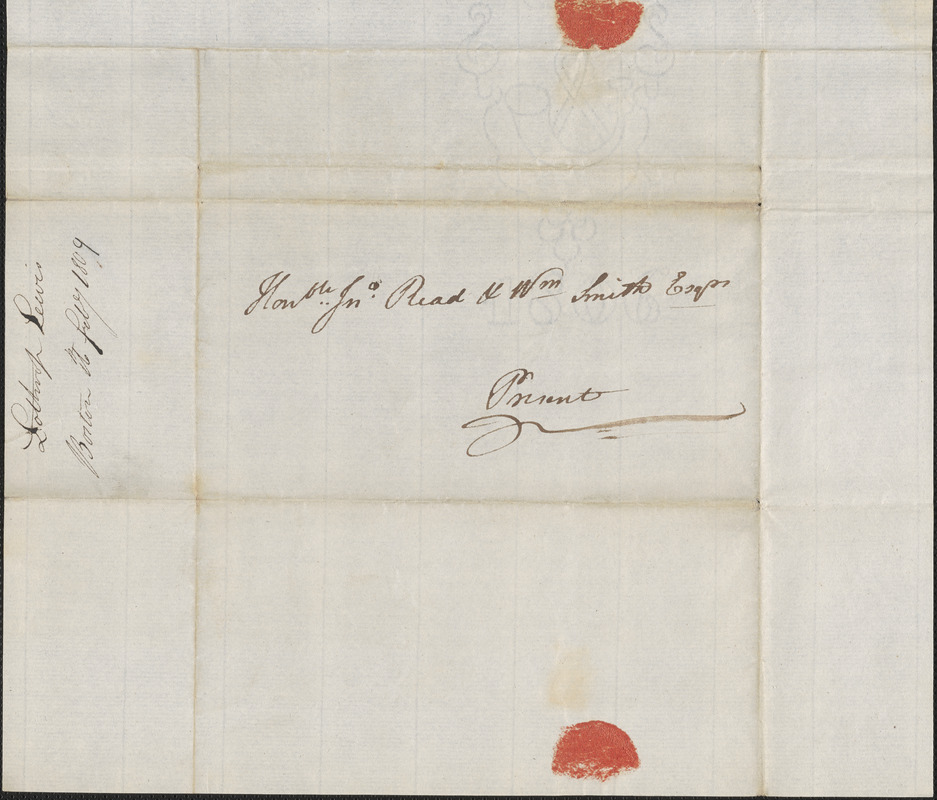 Honble Jno Read & Wm Smith Esqrs
Present
Lothrop Lewis
Boston Feby 1809